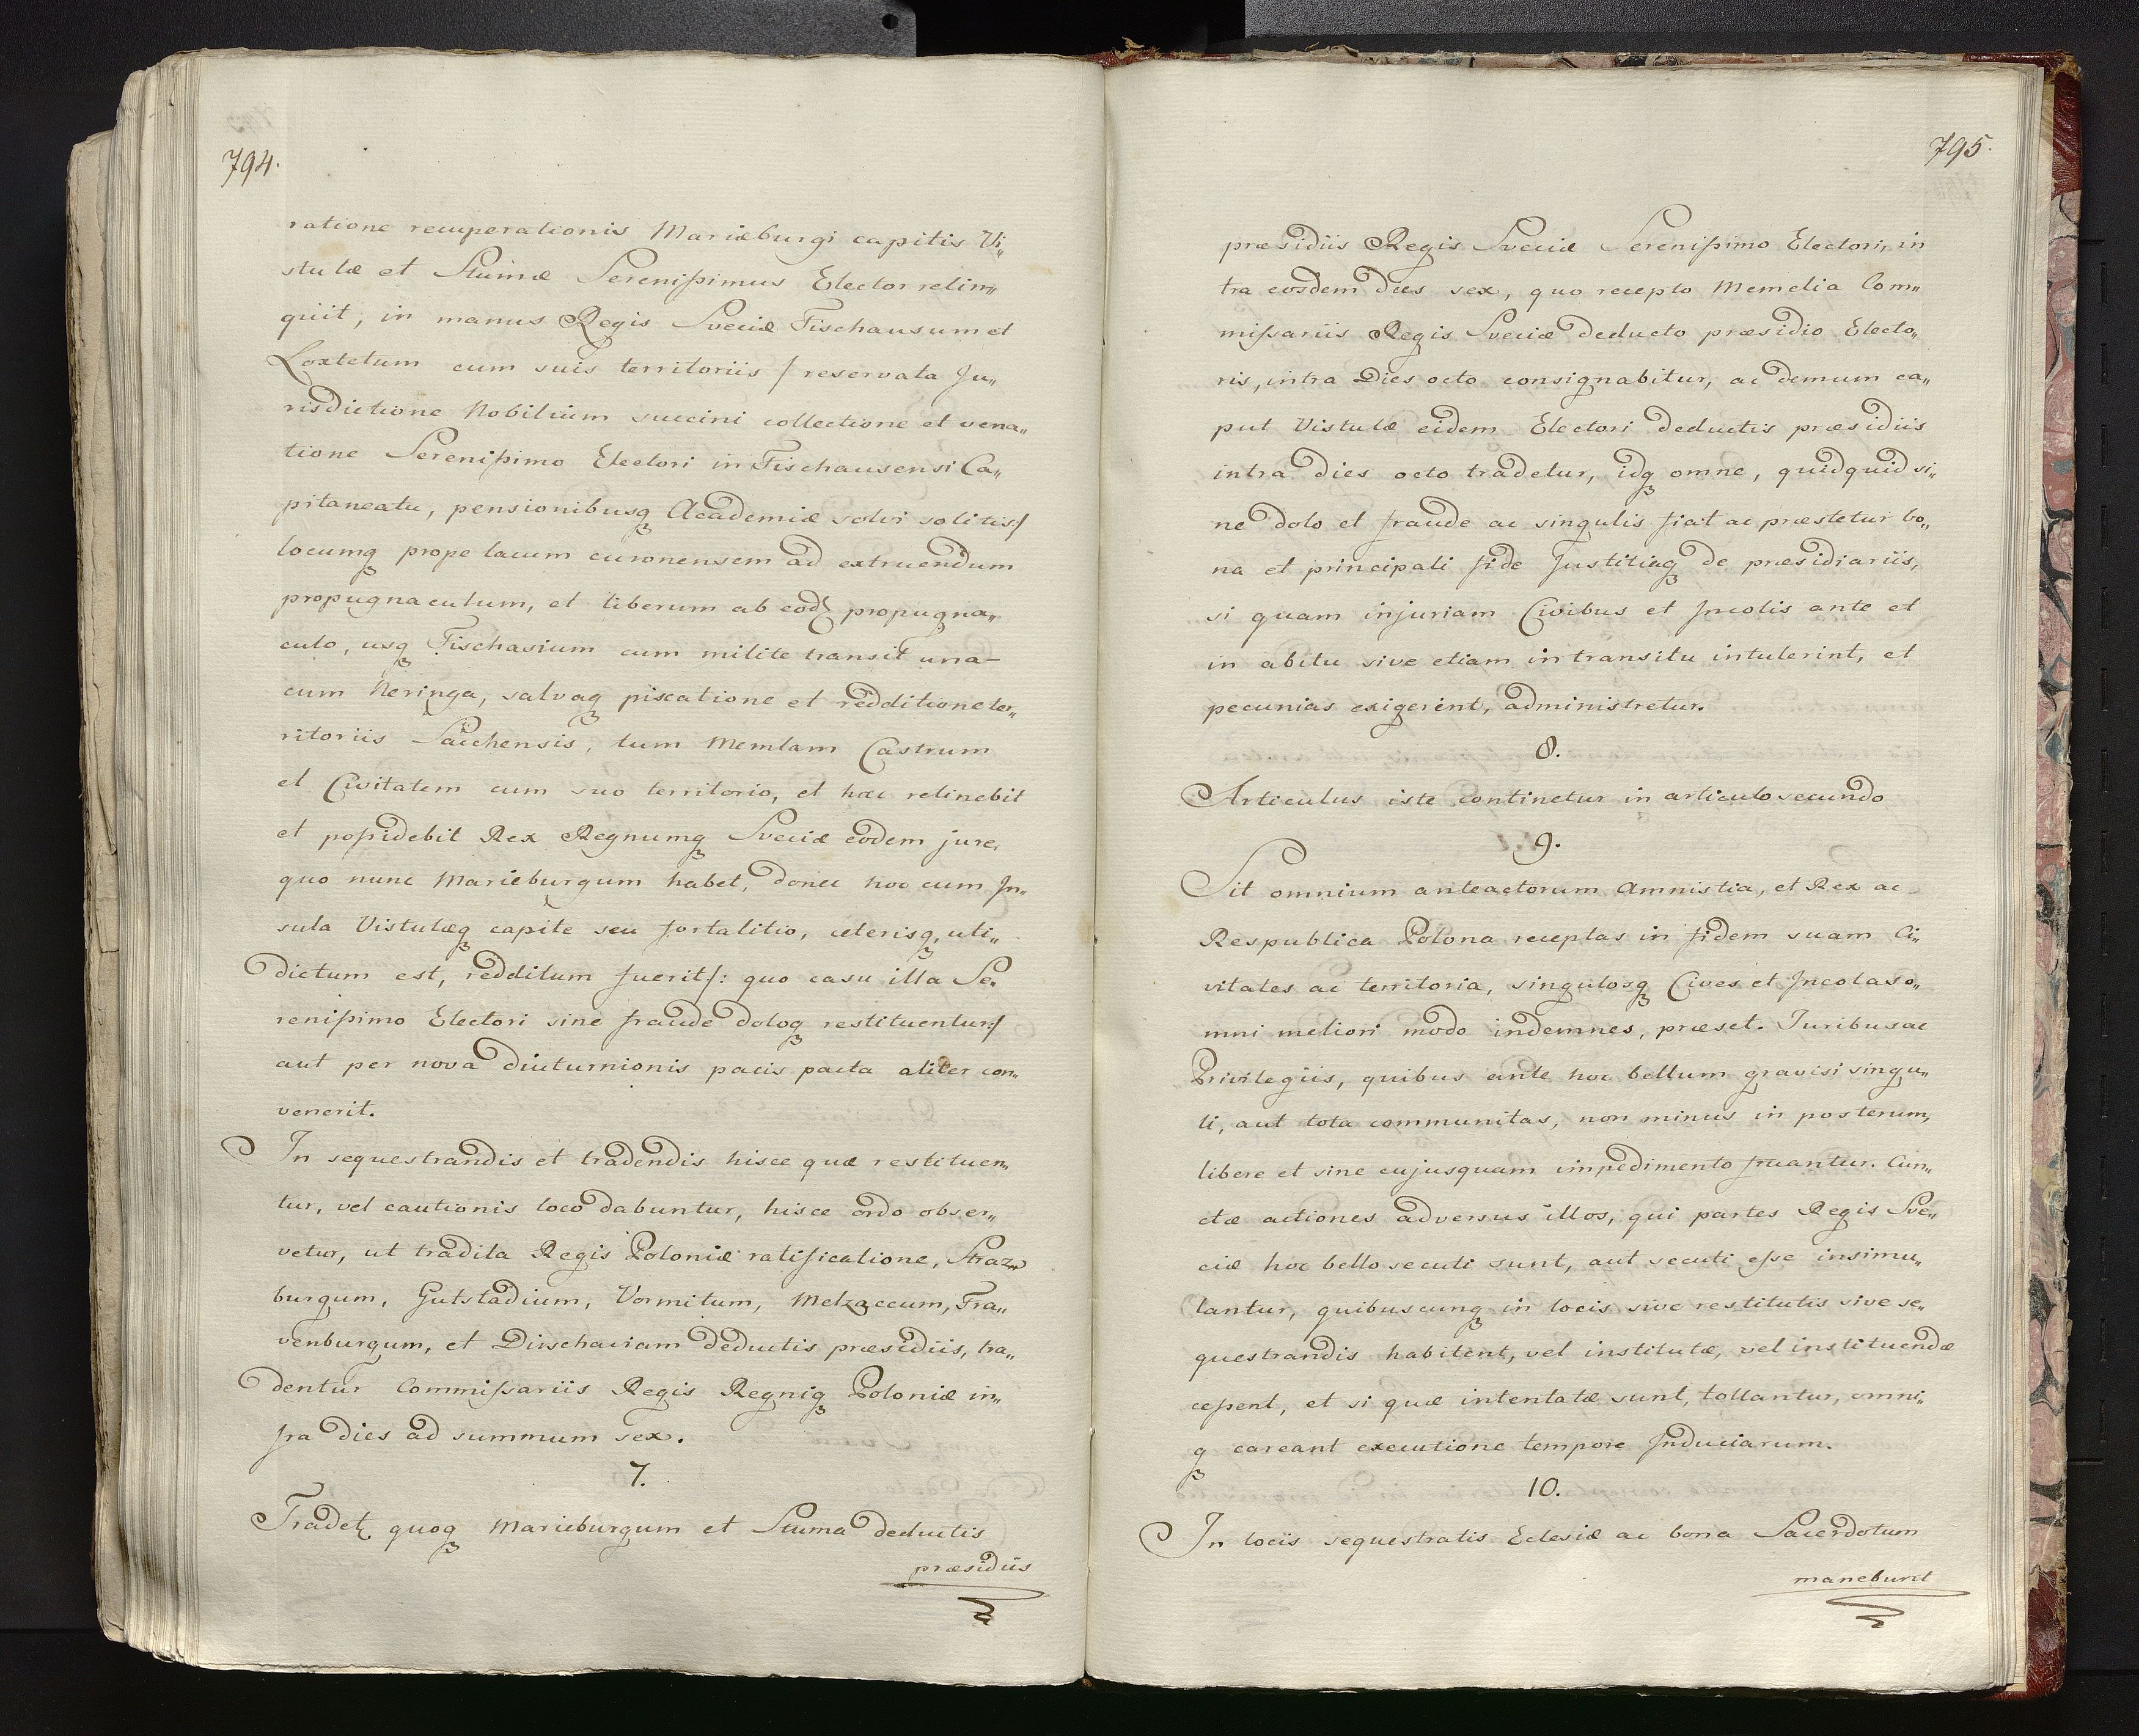 794.
ratione recuperationis Mariæburgi capitis Vi„
stulæ et Stumæ Serenißimus Elector relin„
quit, in manus Regis Sveciæ Fischausum et
Loxtetum cum suis territoriis / reservata Ju„
risdictione Nobilium succini collectione et vena„
tione Serenißimo Electori in Fischausensi Ca„
pitaneatu, pensionibusq Academiæ solvi solitis:/
locumq prope lacum curonensem ad extruendum
propugnaculum, et liberum ab eod propugna„
culo, usq Fischasium cum milite transit una-
cum Neringa, salvaq piscatione et redditione ter„
ritoriis Sacchensis, tum Memlam Castrum
et Civitatem cum suo territorio, et hæc retinebit
et poßidebit Rex Regnumq Sveciæ eodem jure,
quo nunc Marieburgum habet, donec hoc cum In„
sula Vistulæq capite seu fortalitio, ceterisq, uti„
dictum est, redditum fuerit/: quo casu illa Se.
renißimo Electori sine fraude doloq restituentur:/
aut per nova diuturnionis pacis pacta aliter con„
venerit.
In sequestrandis et tradendis hisce quæ restituen„
tur, vel cautionis loco dabuntur, hisce ordo obser„
vetur, ut tradita Regis Poloniæ ratificatione, Straz„
burgum, Gutstadium, Vormitum, Melzaccum, Fra„
venburgum, et Dirschaviam deductis præsidiis, tra„
dentur Commißariis Regis Regniq Poloniæ in„
fra dies ad summum sex.
7.
Tradet quoq Marieburgum et Stuma deductis
præsidiis
795.
præsidiis Regis Sveciæ Serenißimo Electori, in
tra eosdem dies sex, quo recepto Memelia Com„
mißariis Regis Sveciæ deducto præsidio Electo„
ris, intra Dies octo consignabitur, ac demum ca„
put Vistulæ eidem Electori deductis præsidiis
intra dies octo tradetur, idq omne, quidquid si„
ne dolo et fraude ac singulis fiat ac præstetur bo„
na et principali fide Justitiaq de præsidiariis,
si quam injuriam Civibus et Incolis ante et
in abitu sive etiam in transitu intulerint, et
pecunias exigerent, administretur.
8.
Articulus iste continetur in articulo secundo
9.
Sit omnium anteactorum Amnistia, et Rex ac
Respublica Polona receptas in fidem suam Ci„
vitates ac territoria, singulosq Cives et Incolas o„
mni meliori modo indemnes, præset. Juribus ac
Privilegiis, quibus ante hoc bellum gravisi singu„
li, aut tota communitas, non minus in posterum,
libere et sine cujusquam impedimento fruantur. Cun„
ctæ actiones adversus illos, qui partes Regis Sve„
ciæ hoc bello secuti sunt, aut secuti eße insimu„
lantur, quibuscunq in locis sive restitutis sive se„
questrandis habitent, vel institutæ, vel instituendæ
ceßent, et si quæ intentatæ sunt, tollantur, omni„
q careant executione tempore Induciarum.
10.
In locis sequestratis Eclesiæ ac bona Sacerdotum
manebunt